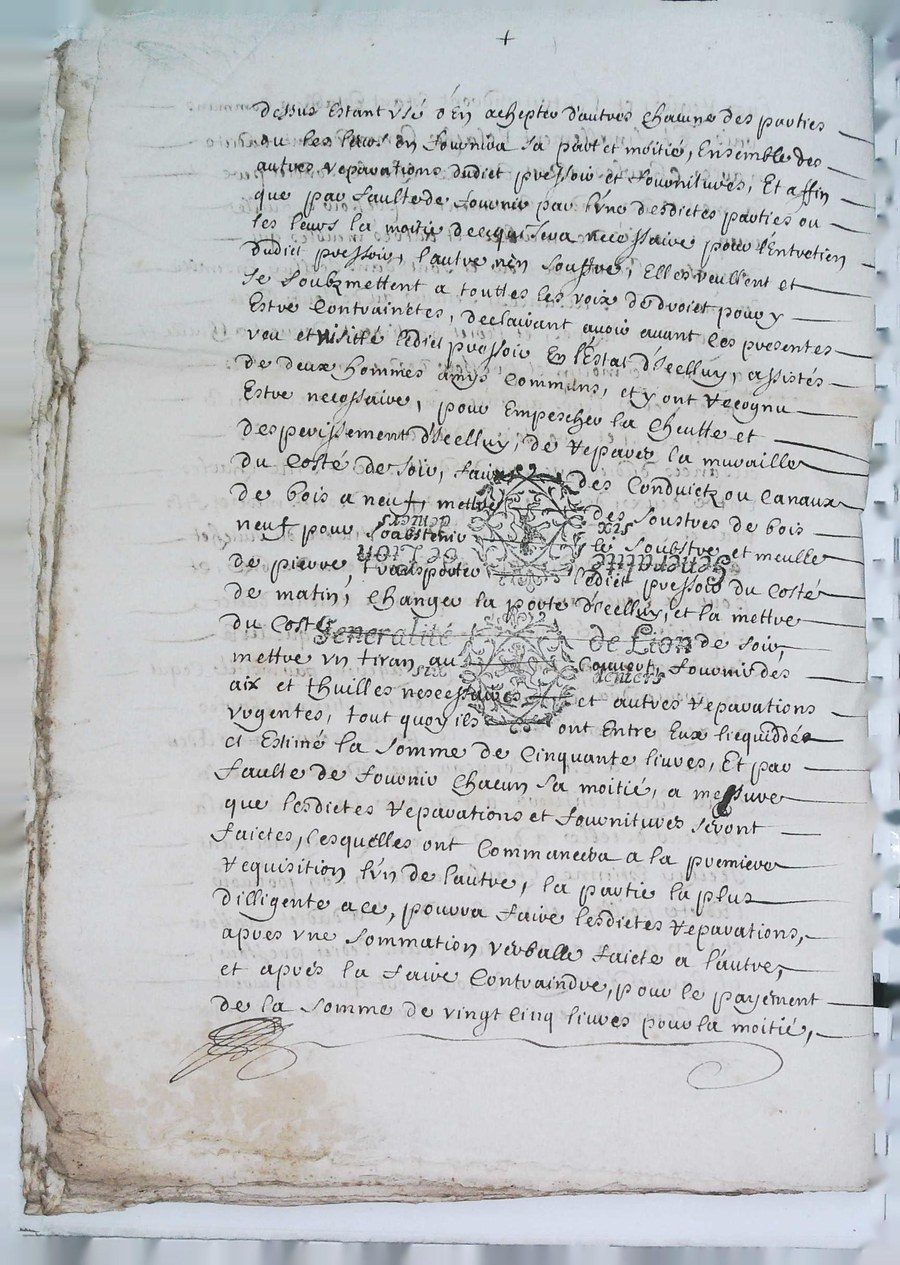 +
dessus Estant Usé d'En achepter d'autres Chacune des parties
ou les leurs En fournira sa part et moitié, Ensemble des
autres reparations dudict pressoir et fournitures, Et affin
que par faulte de fournir par l'Une desdictes parties ou
les leurs la moitié de ce qui sera necessaire pour l'Entretien
dudict pressoir, l'autre n'en souffre, Elles veullent et
se soubzmettent a touttes les voix de droict pour y
Estre Contrainctes, declairant avoir avant ces presentes
veu et visitté ledict pressoir En l'Estat d'Icelluy, assistés
de deux hommes amys Communs, et y ont recognu
Estre necessaire, pour Empescher la Cheutte et
desperissement d'Icelluy, de reparer la muraille
du Costé de soir, faire des Conduictz ou Canaux
de bois a neuf, mettre des soustres de bois
neuf pour soabstenir le soubstre et meulle
de pierre, transporter ledict pressoir du Costé
de matin, Changer la porte d'Icelluy, et la mettre
du Costé de soir,
Generalité de Lion
six deniers
mettre un tiran au Couvert, fournir des
aix et thuilles nesecessaires et autres reparations
urgentes, tout quoy ils ont Entre Eux licquiddée
et Estimé la somme de Cinquante livres, Et par
faulte de fournir Chacun sa moitié, a mesure
que lesdictes reparations et fournitures seront
faictes, lesquelles ont Commancera a la premiere
requisition l'un de l'autre, la partie la plus
dilligente a ce, pourra faire lesdictes reparations,
apres une sommation verballe faicte a l'autre,
et aprés la faire Contraindre, pour le payement
de la somme de vingt Cinq livres pour la moitié,